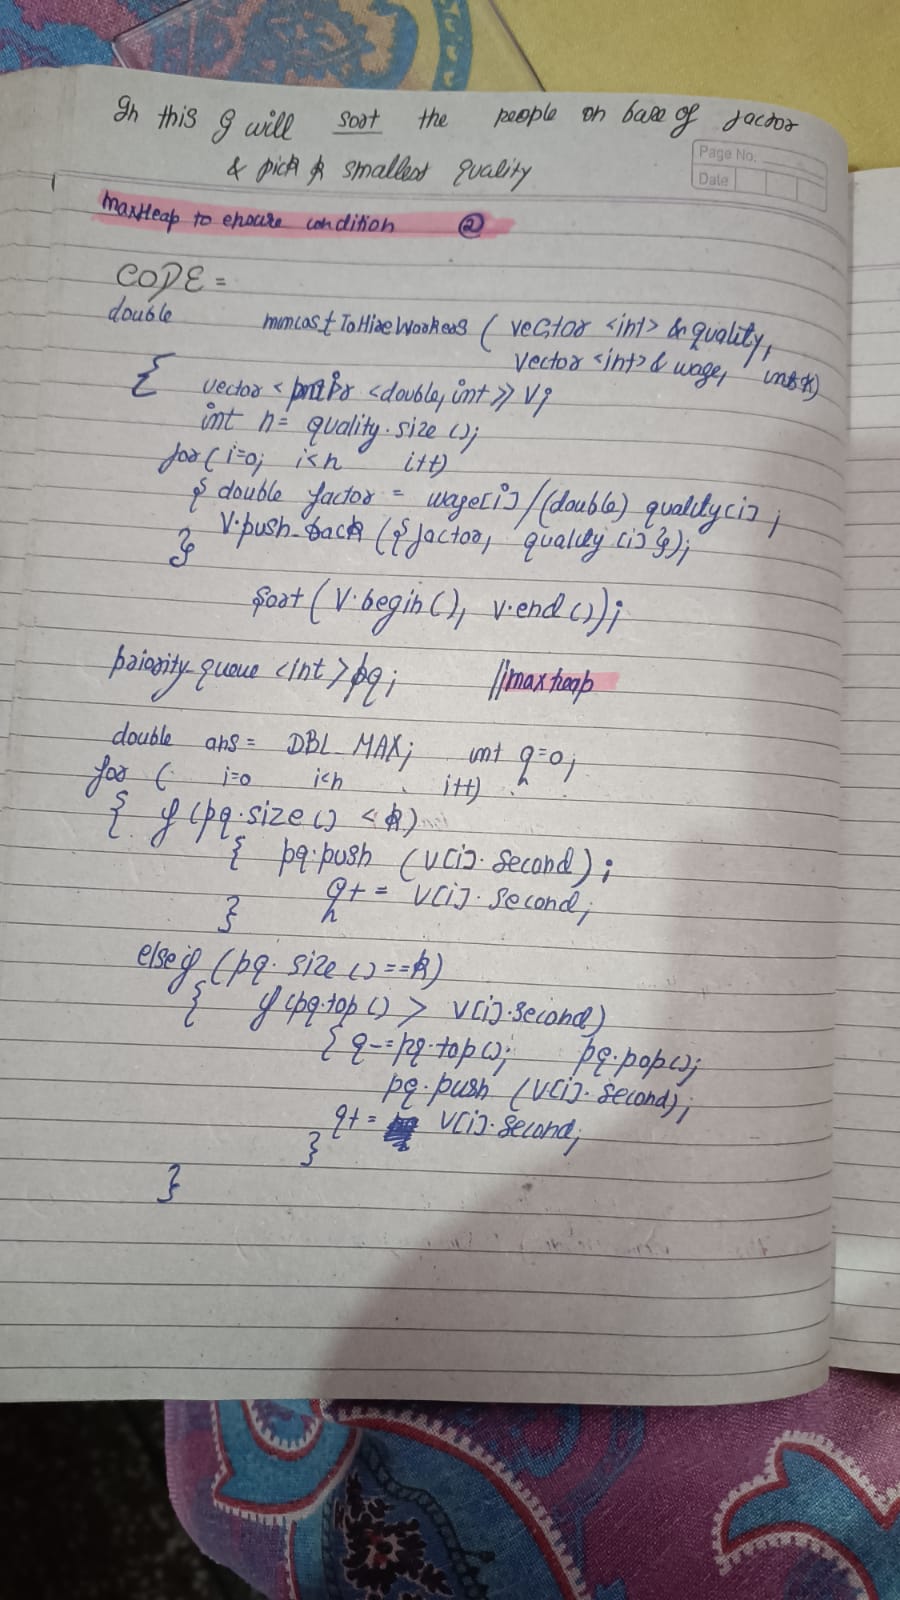 In this I will sort the people on base of factor
& pick k smallest quality
Page No.
Date
maxHeap to ensure condition ②
CODE =
double mincostToHireWorkers ( vector <int> & quality,
vector <int> & wage, int k)
{ vector < pair <double, int >> V;
int n = quality.size ();
for ( i=0; i<n i++)
{ double factor = wage[i] / (double) quality[i];
V.push_back ({factor, quality [i]});
}
sort ( V.begin(), v.end ());
priority_queue <int> pq; // max heap
double ans = DBL_MAX; int q=0;
for ( i=0 i<n i++)
{ if (pq.size () < k)
{ pq.push (V[i].second);
q+ = V[i].second;
}
else if (pq.size () == k)
{ if (pq.top () > V[i].second)
{ q-=pq.top(); pq.pop();
pq.push (V[i].second);
q+ = V[i].second;
}
}